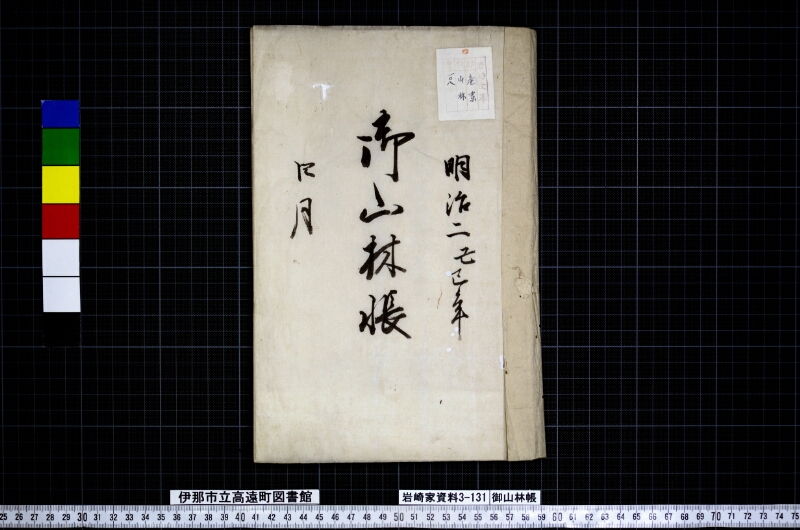 産業
山林
明治二己巳年
御山林帳
口月
伊那市立高遠町図書館
岩崎家資料3-131
御山林帳
25 26 27 28 29 30 31 32 33 34 35 36 37 38 39 40 41 42 43 44 45 46 47 48 49 50 51 52 53 54 55 56 57 58 59 60 61 62 63 64 65 66 67 68 69 70 71 72 73 74 75